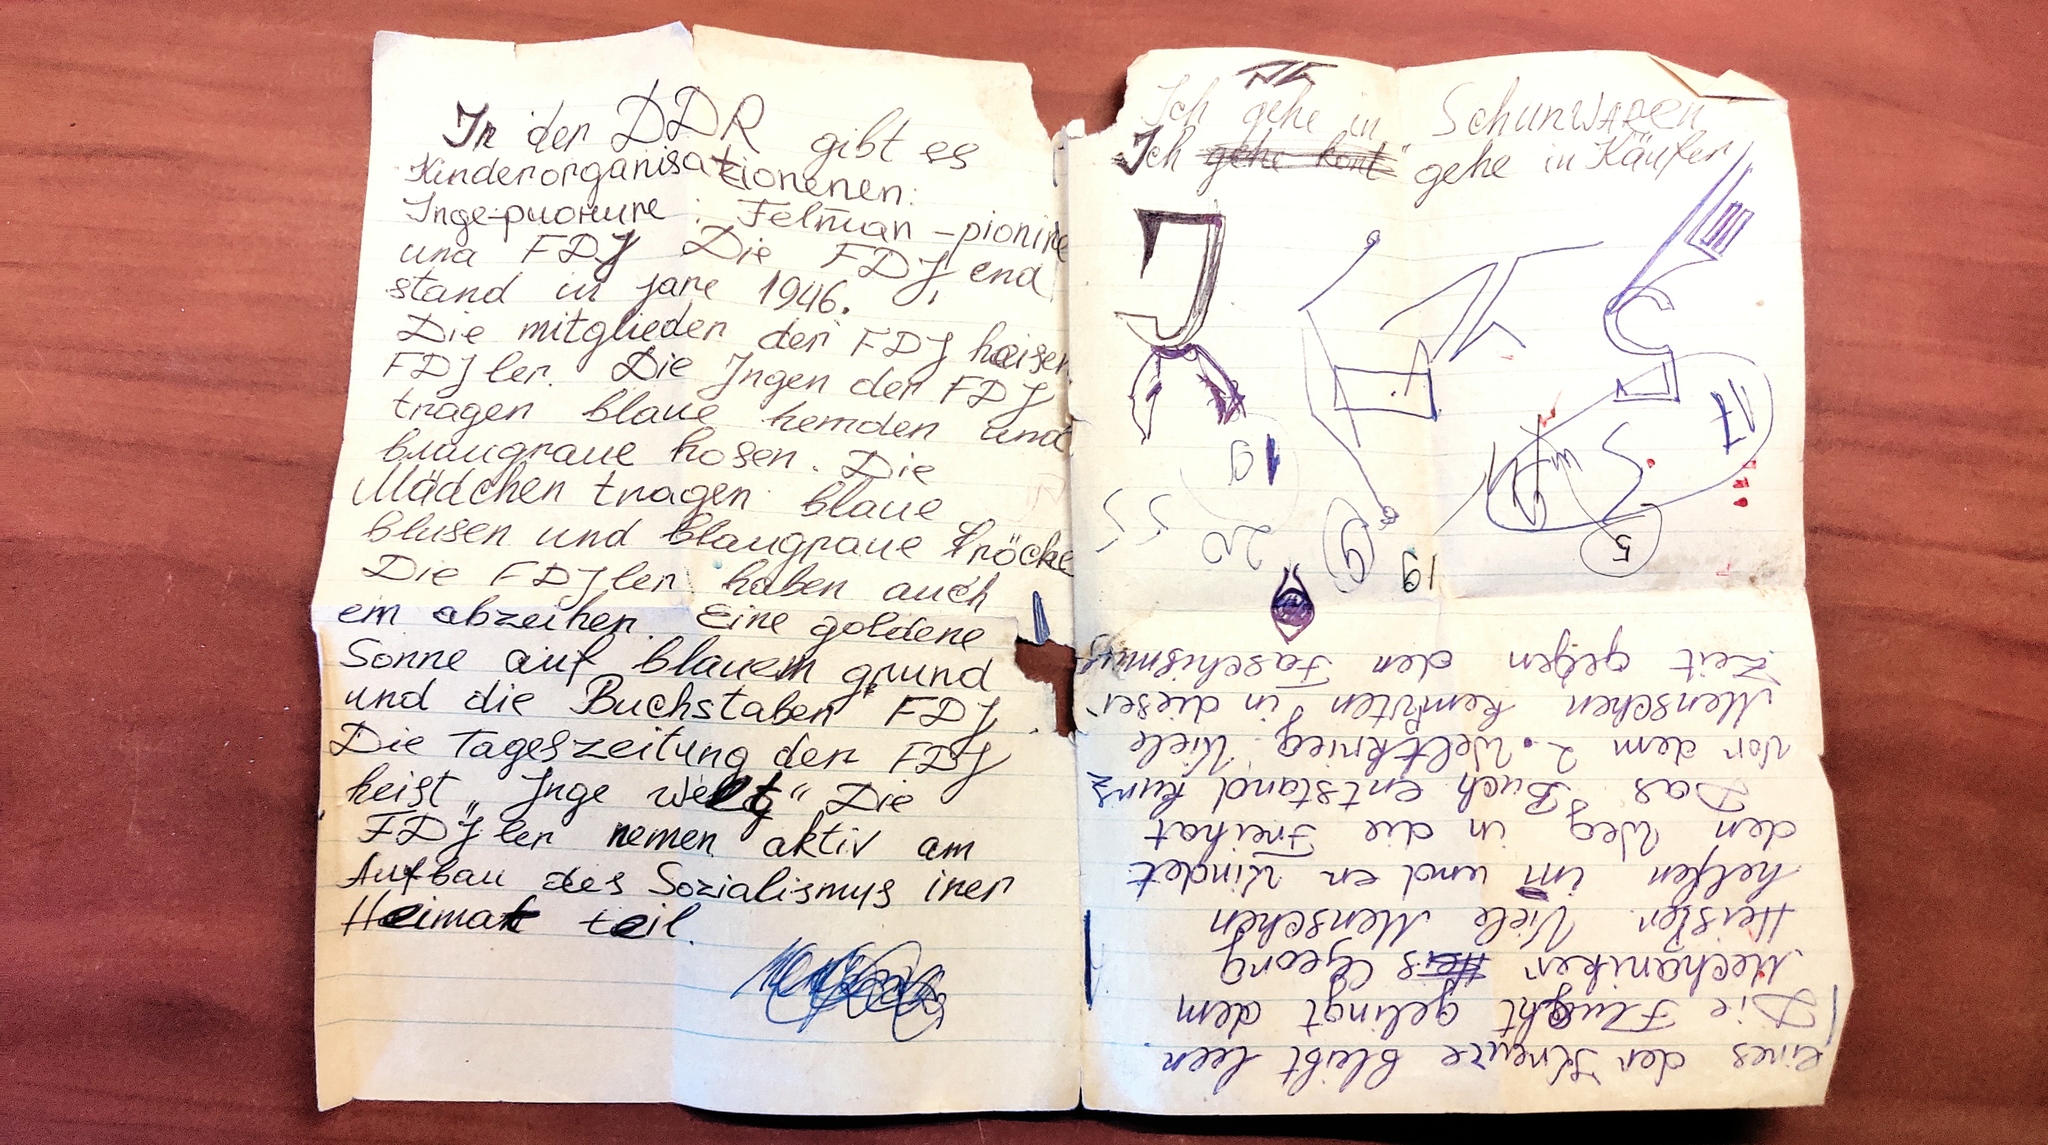 In der DDR gibt es
Kinderorganisationenen:
Inge-пионире : Felman-pionire
und FDJ Die FDJ, end
stand in jare 1946.
Die mitglieder der FDJ haisen
FDJler. Die Jngen der FDJ
tragen blaue hemden und
blaugraue hosen. Die
Mädchen tragen blaue
blusen und blaugraue röcke
Die FDJler haben auch
em abzeihen. Eine goldene
Sonne auf blauem grund
und die Buchstaben FDJ
Die Tageszeitung der FDJ
heist „Jnge welt“ Die
FDJler nemen aktiv am
Aufbau des Sozialismys irer
Heimat teil.
Ich gehe in SchUhWAREN
Ich gehe in Käufer
17
19
20
5
9
19
55
eines der Kreuze bleibt leer.
Die Flucht gelingt dem
Mechaniker Georg
Heisler. Viele Menschen
helfen im und er findet
den Weg in die Freihat
Das Buch entstand kurz
vor dem 2. Weltkrieg. Viele
Menschen kemften in dieser
Zeit gegen den Faschismus